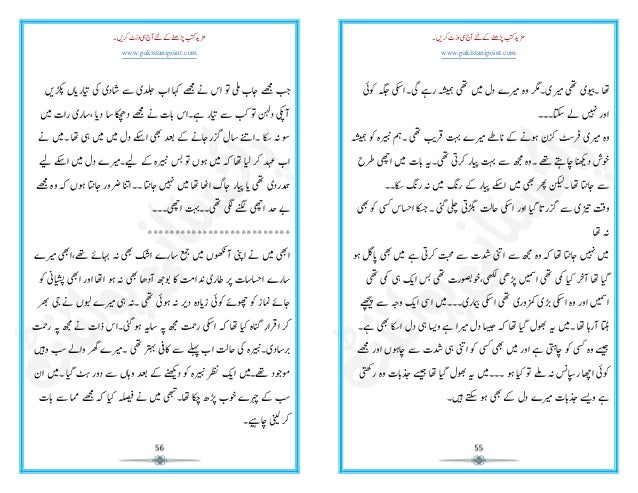 مزید کتب پڑھنے کے لئے آج ہی وزٹ کریں۔
www.pakistanipoint.com
تھا ۔ بیوی تھی میری۔ مگر وہ میرے دل میں تھی ہمیشہ رہے گی۔ اسکی جگہ کوئی
اور نہیں لے سکتا۔۔۔
وہ میری فرسٹ کزن ہونے کے ناطے میرے بہت قریب تھی ۔ ہم نبیرہ کو ہمیشہ
خوش دیکھنا چاہتے تھے ۔ وہ مجھ سے بہت پیار کرتی تھی۔ یہ بات میں اچھی طرح
سے جانتا تھا ۔ لیکن پھر بھی میں اسکے پیار کے رنگ میں رنگ نہ سکا۔۔
وقت تیزی سے گزرتا گیا اور اسکی حالت بگڑتی چلی گئی ۔ جسکا احساس کسی کو بھی
نہ تھا
میں نہیں جانتا تھا کہ وہ مجھ سے اتنی شدت سے محبت کرتی ہے میں بھی پاگل ہو
گیا تھا آخر کیا کمی تھی اسمیں پڑھی لکھی، خوبصورت تھی بس ایک ہی کمی تھی
اسمیں اور وہ اسکی بڑی کمزوری تھی اسکی بیماری۔۔۔ میں اسی ایک وجہ سے پیچھے
ہٹتا آرہا تھا ۔ میں یہ بھول گیا تھا کہ جیسا دل میرا ہے ویسا ہی دل اسکا بھی ہے ۔
جیسے وہ کسی کو چاہتی ہے اور میں بھی کسی کو اتنی ہی شدت سے چاہوں اور مجھے
کوئی اچھا رسپانس نہ ملے تو کیا ہو ۔۔۔ میں یہ بھول گیا تھا جیسے جذبات وہ رکھتی
ہے ویسے جذبات میرے دل کے بھی ہو سکتے ہیں۔
55
مزید کتب پڑھنے کے لئے آج ہی وزٹ کریں۔
www.pakistanipoint.com
جب مجھے جاب ملی تو اس نے مجھے کہا اب جلدی سے شادی کی تیاریاں پکڑیں
آپکی دلہن تو کب سے تیار ہے۔ اس بات نے مجھے دھچکا سا دیا ، ساری رات میں
سو نہ سکا ۔ اتنے سال گزر جانے کے بعد بھی اسکے دل میں میں ہی تھا ۔ میں نے
اب عہد کر لیا تھا کہ میں ہوں تو بس نبیرہ کے لیے۔ میرے دل میں اسکے لیے
ہمدردی تھی یا پیار جاگ اٹھا تھا میں نہیں جانتا۔۔ اتنا ضرور جانتا ہوں کہ وہ مجھے
بے حد اچھی لگنے لگی تھی ۔۔ بہت اچھی۔۔۔
*************************
ابھی میں نے اپنی آنکھوں میں جمع سارے اشک بھی نہ بہائے تھے، ابھی میرے
سارے احساسات پر طاری ندامت کا بوجھ آدھا بھی نہ ہوا تھا اور ابھی پیشانی کو
جائے نماز کو چھوئے کوئی زیادہ دیر نہ ہوئی تھی ۔ نہ ہی میرے لبوں نے جی بھر
کر اقرار گناہ کیا تھا کہ اسکی رحمت مجھ پہ سایہ ہو گئی۔ اس ذات نے مجھ پہ رحمت
برسادی۔ نبیرہ کی حالت اب پہلے سے کافی بہتر تھی ۔ میرے گھر والے سب وہیں
موجود تھے۔ میں ایک نظر نبیرہ کو دیکھنے کے بعد وہاں سے دور ہٹ گیا ۔ میں ان
سب کے چہرے خوب پڑھ چکا تھا۔ تبھی میں نے فیصلہ کیا کہ مجھے مما سے بات
کر لینی چاہیے۔
56